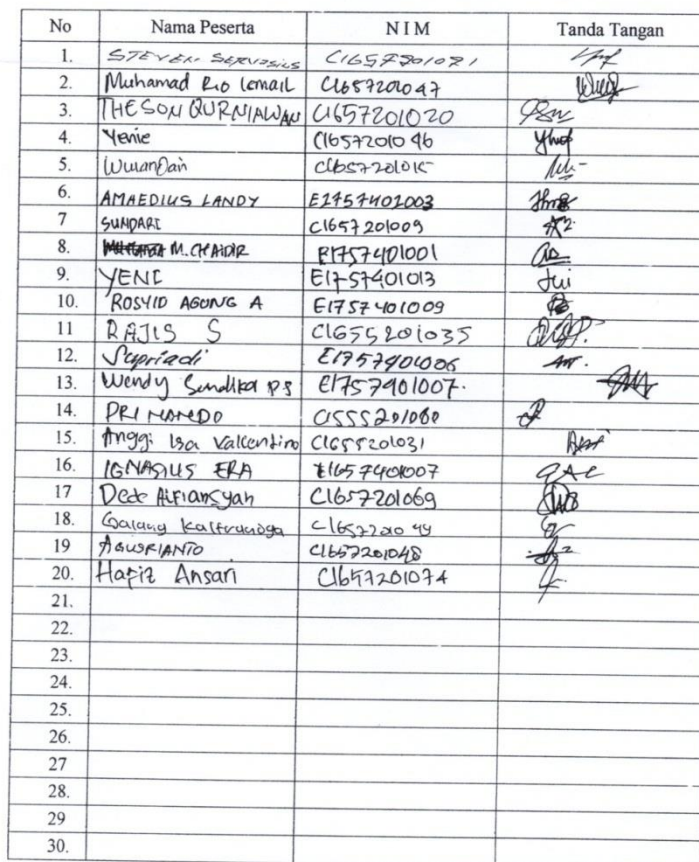 No Nama Peserta NIM Tanda Tangan
1. STEVEN SERVASIUS
2. Muhamad Rio Ismail C1657201047
3. THESON QURNIAWAN C1657201020
4. Yenie C1657201046
5. Wulandari C1657201015
6. AMAEDIUS LANDY E1757401003
7 SUNDARI C1657201009
8. M. CHAIDIR E1757401001
9. YENI E1757401013
10. ROSYID AGUNG A E1757401009
11 RAJIS S C1655201035
12. Supriadi E1757401006
13. Wendy P S E1757401007.
14. PRINANDO C1555201060
15. Anggi Isa Valentino C1655201031
16. IGNASIUS ERA E1657401007
17 Dede Alfiansyah C1657201069
18. Galang C1657201044
19 AGUSRIANTO C1657201048
20. Hafiz Ansari C1657201074
21.
22.
23.
24.
25.
26.
27
28.
29
30.